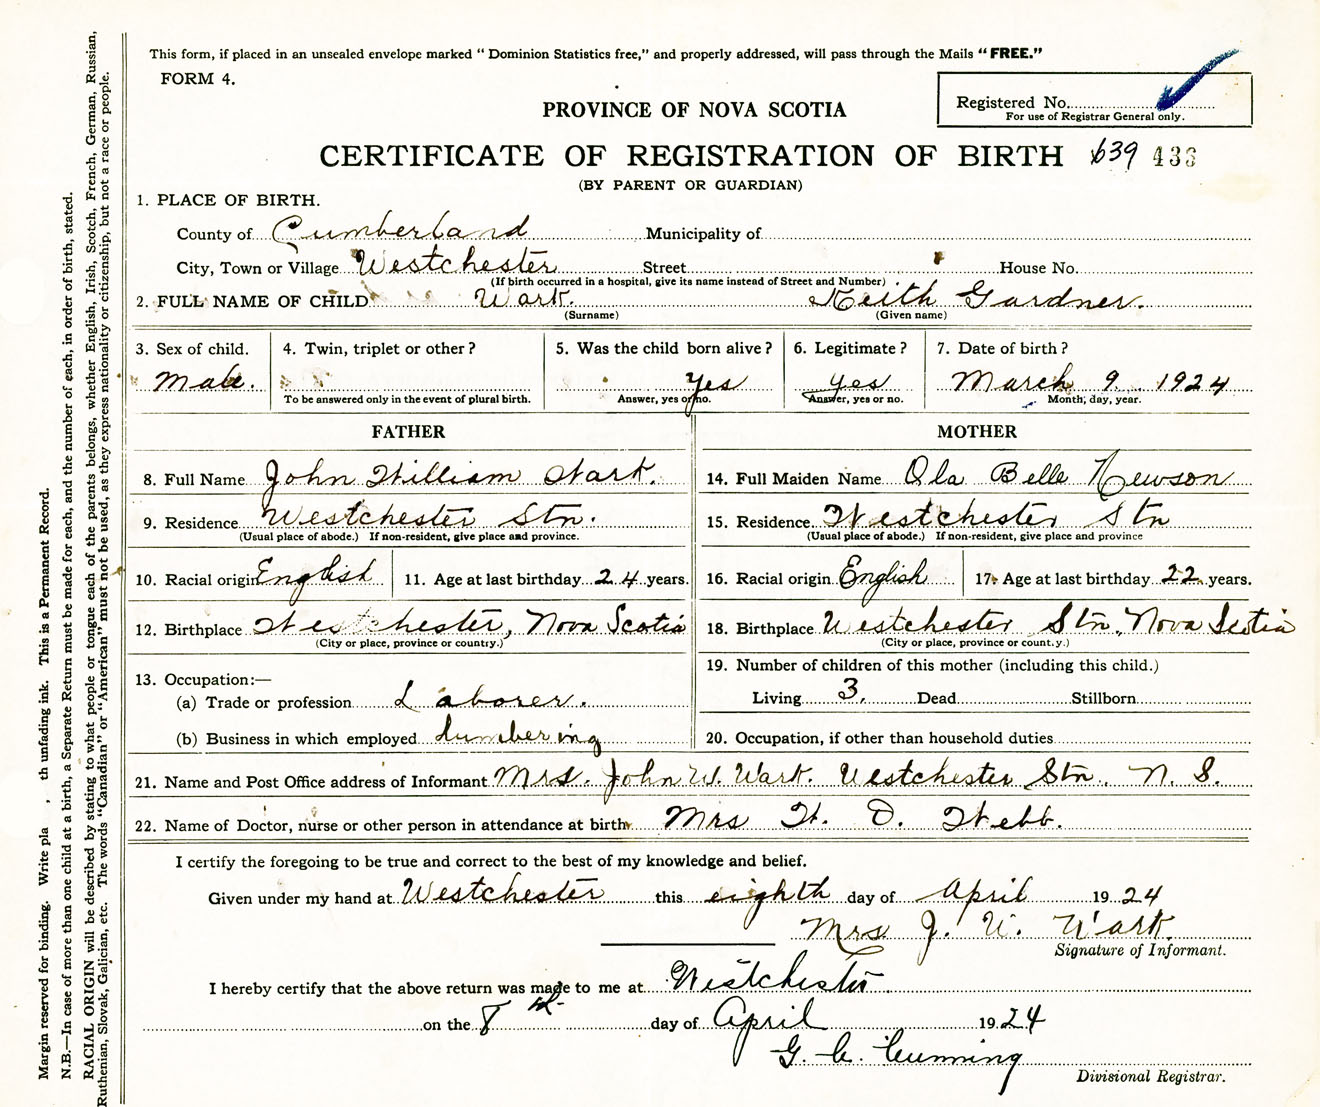 This form, if placed in an unsealed envelope marked " Dominion Statistics free," and properly addressed, will pass through the Mails "FREE."
FORM 4.
Registered No.
For use of Registrar General only.
PROVINCE OF NOVA SCOTIA
CERTIFICATE OF REGISTRATION OF BIRTH 639 433
(BY PARENT OR GUARDIAN)
1. PLACE OF BIRTH.
County of Cumberland Municipality of
City, Town or Village Westchester Street House No.
(If birth occurred in a hospital, give its name instead of Street and Number)
2. FULL NAME OF CHILD Wark. Keith Gardner.
(Surname) (Given name)
3. Sex of child. 4. Twin, triplet or other? 5. Was the child born alive? 6. Legitimate? 7. Date of birth?
Male. Yes yes March 9 1924
To be answered only in the event of plural birth. Answer, yes or no. Answer, yes or no. Month, day, year.
FATHER MOTHER
8. Full Name John William Wark. 14. Full Maiden Name Ola Belle Newson
9. Residence Westchester Stn. 15. Residence. Westchester Stn
(Usual place of abode.) If non-resident, give place and province. (Usual place of abode.) If non-resident, give place and province
10. Racial origin English 11. Age at last birthday 24 years. 16. Racial origin English 17. Age at last birthday 22 years.
12. Birthplace Westchester, Nova Scotia 18. Birthplace Westchester Stn., Nova Scotia
(City or place, province or country.) (City or place, province or count.y.)
13. Occupation:— 19. Number of children of this mother (including this child.)
(a) Trade or profession Laborer. Living 3. Dead Stillborn
(b) Business in which employed lumbering 20. Occupation, if other than household duties
21. Name and Post Office address of Informant Mrs. John W. Wark. Westchester Stn. N. S.
22. Name of Doctor, nurse or other person in attendance at birth Mrs H. D. Webb.
I certify the foregoing to be true and correct to the best of my knowledge and belief.
Given under my hand at Westchester this eighth day of April 1924
Mrs J. W. Wark.
Signature of Informant.
I hereby certify that the above return was made to me at Westchester
on the 8th day of April 1924
G. C. Cunning
Divisional Registrar.
Margin reserved for binding. Write pla , th unfading ink. This is a Permanent Record.
N.B.—In case of more than one child at a birth, a Separate Return must be made for each, and the number of each, in order of birth, stated.
RACIAL ORIGIN will be described by stating to what people or tongue each of the parents belongs, whether English, Irish, Scotch, French, German, Russian,
Ruthenian, Slovak, Galician, etc. The words "Canadian" or "American" must not be used, as they express nationality or citizenship, but not a race or people.